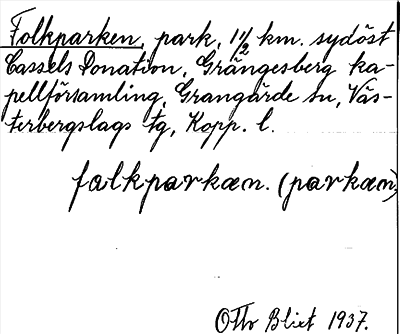 Folkparken, park, 1 1/2 km. sydöst
Cassels Donation, Grängesberg ka-
pellförsamling, Grangärde sn, Väs-
terbergslags tg, Kopp. l.
falkparkæn. (parkæn)
Otto Blixt 1937.